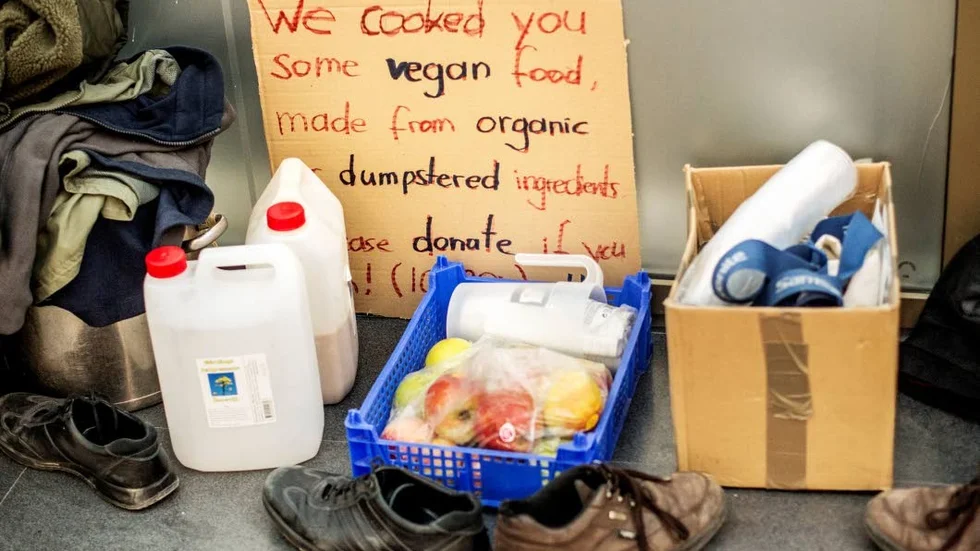 We cooked you
some vegan food,
made from organic
dumpstered ingredients
donate if you